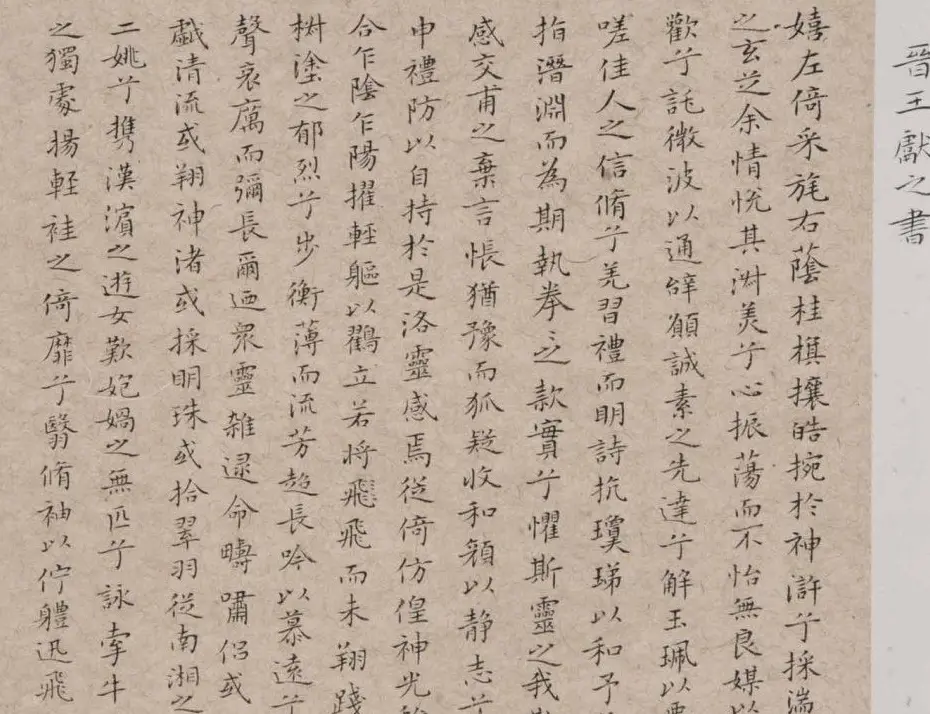 晉王獻之書
嬉左倚采旄右蔭桂旗攘皓捥於神滸兮採湍
之玄芝余情恱其淑美兮心振蕩而不怡無良媒以
歡兮託微波以通辝願誠素之先達兮解玉珮以要
嗟佳人之信脩兮羌習禮而明詩抗瓊珶以和予兮
指潛淵而為期執拳之款實兮懼斯靈之我欺
感交甫之棄言悵猶豫而狐疑收和顏以静志兮
申禮防以自持於是洛靈感焉從倚仿偟神光離
合乍陰乍陽擢輕軀以鸖立若将飛飛而未翔踐
樹塗之郁烈兮步衡薄而流芳超長吟以慕遠兮
聲哀厲而彌長爾迺眾靈雜逯命疇嘯侶或
戲清流或翔神渚或採明珠或拾翠羽從南湘之
二姚兮攜漢濱之遊女歎匏媧之無匹兮詠牽牛
之獨處揚輕袿之倚靡兮翳脩袖以佇軆迅飛